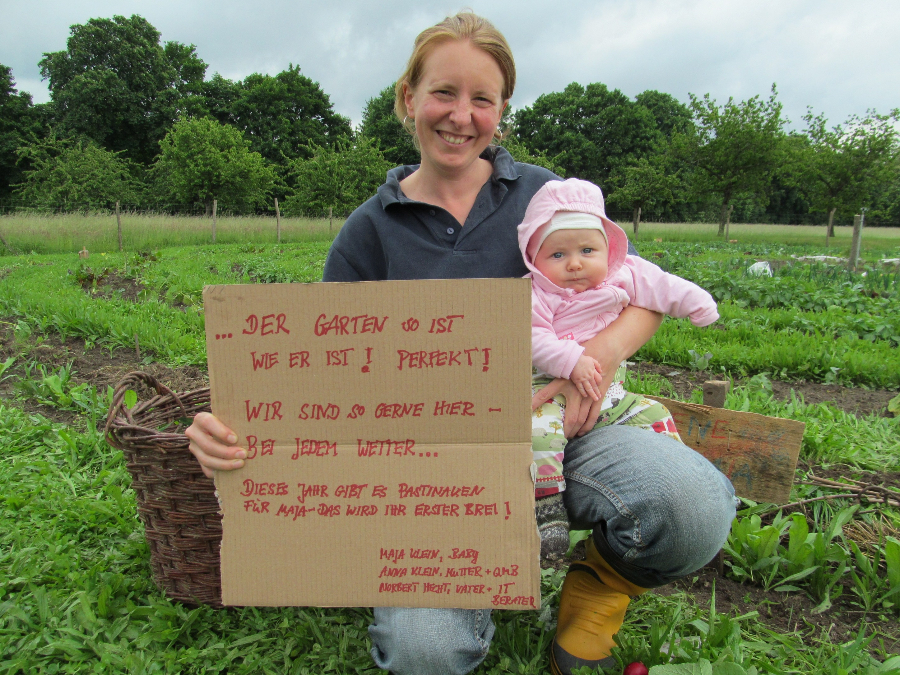 ... DER GARTEN SO IST
WIE ER IST! PERFEKT!
WIR SIND SO GERNE HIER -
BEI JEDEM WETTER...
DIESES JAHR GIBT ES PASTINAKEN
FÜR MAJA - DAS WIRD IHR ERSTER BREI!
MAJA KLEIN, BABY
ANNA KLEIN, MUTTER + QMB
NORBERT HECHT, VATER + IT
BERATER